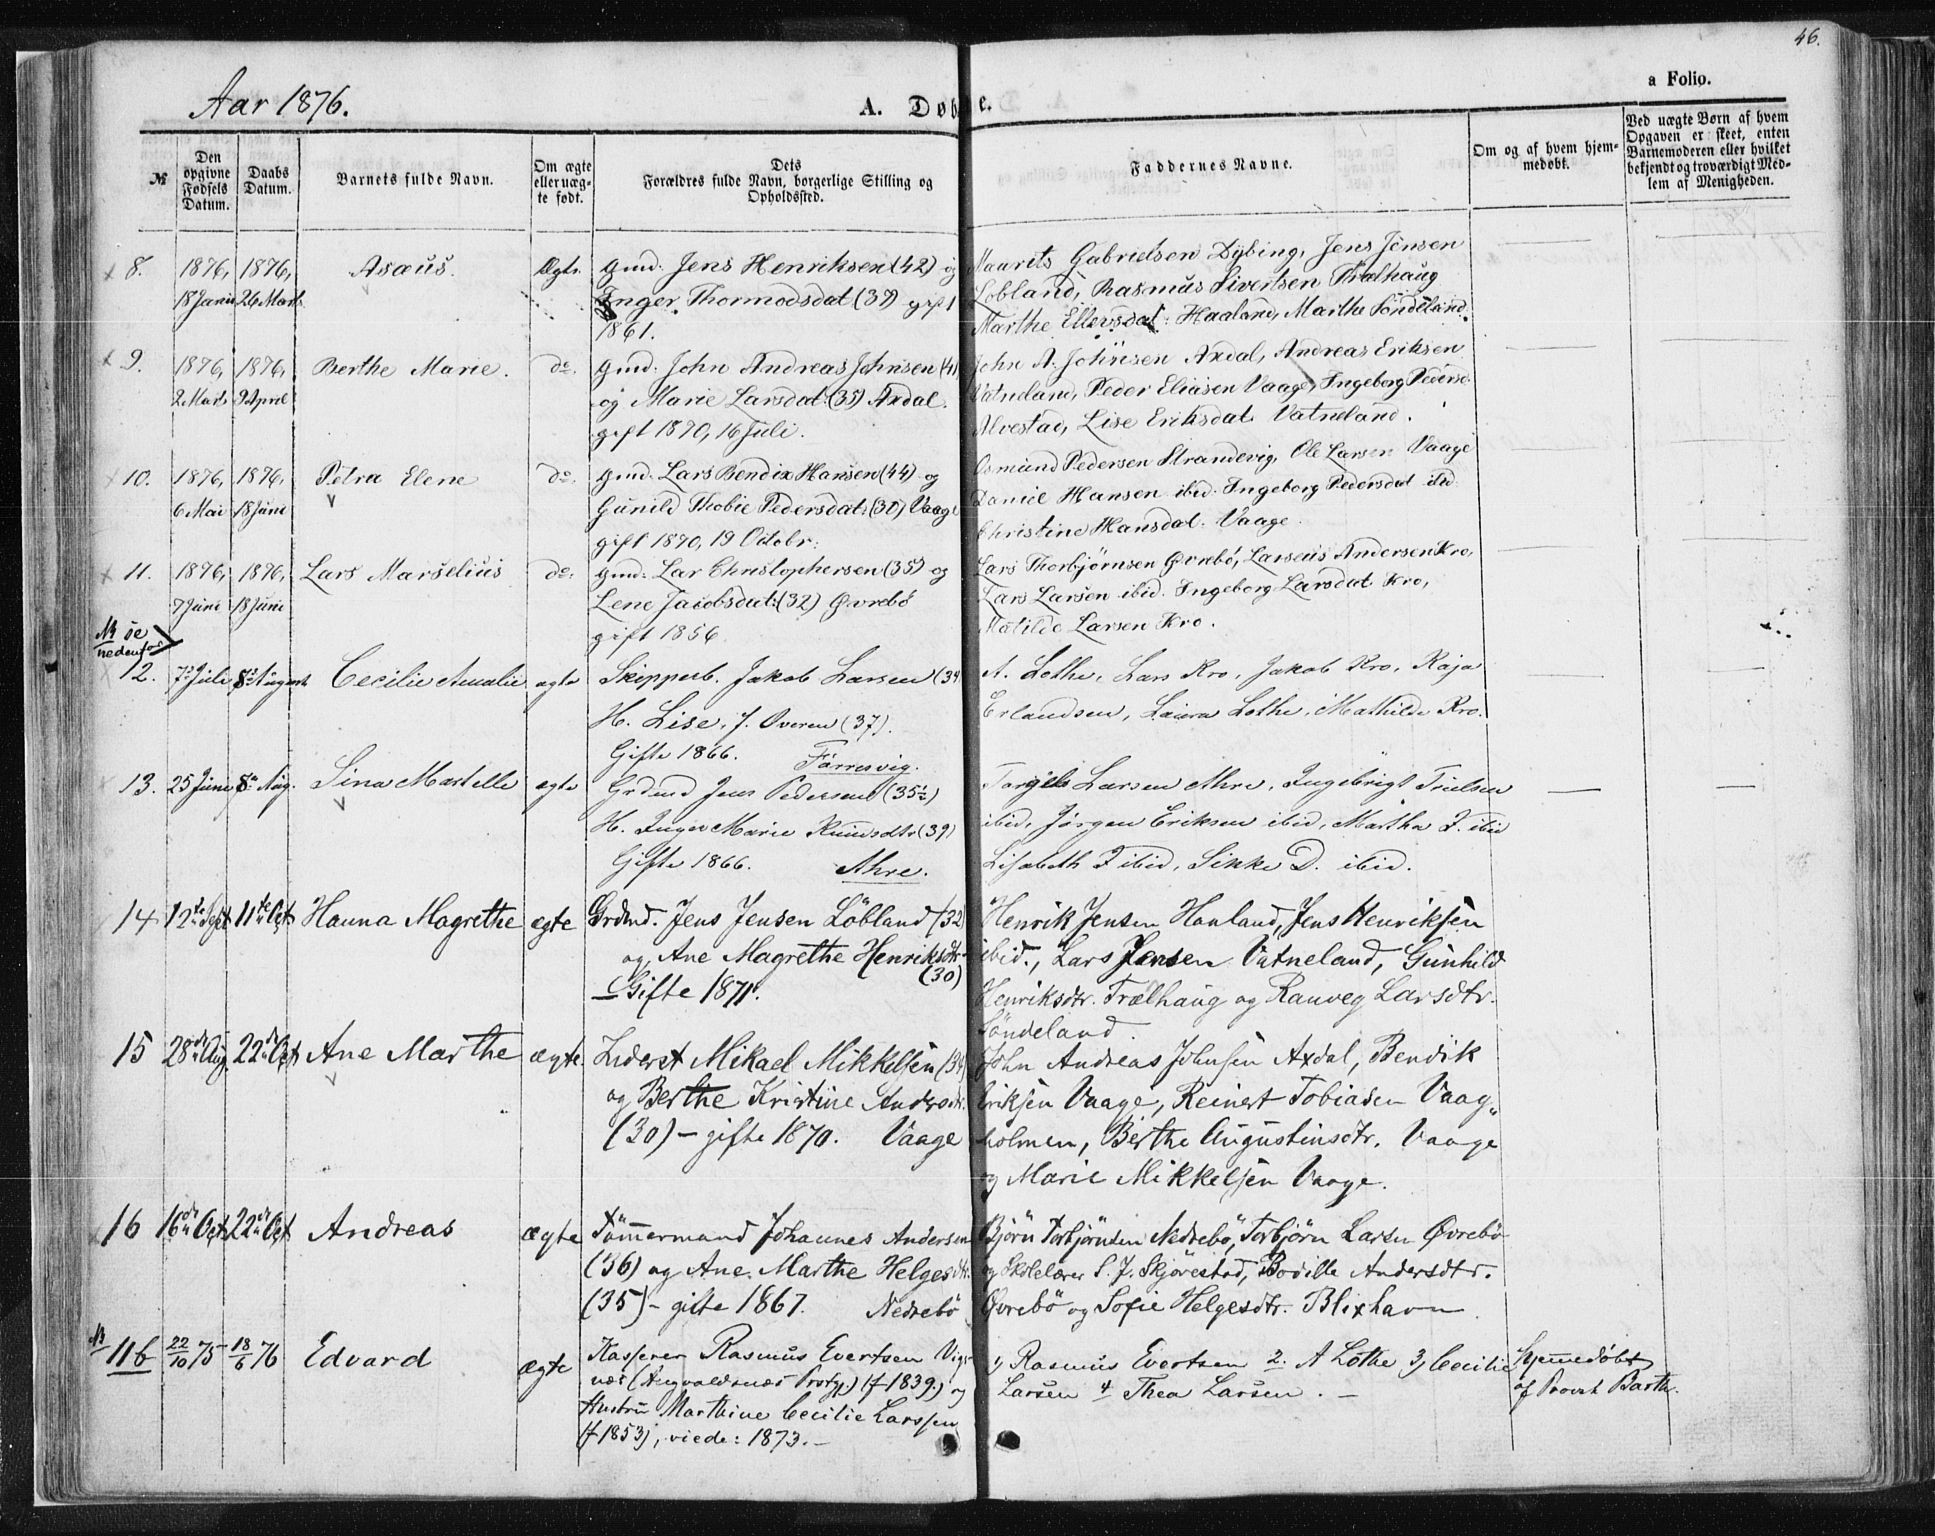 46.
a Folio.
Aar 1876.
A. Døb e.
№
Den opgivne Fødsels Datum.
Daabs Datum.
Barnets fulde Navn.
Om ægte eller uæg-te født.
Dets Forældres fulde Navn, borgerlige Stilling og Opholdssted.
Faddernes Navne.
Om og af hvem hjem-medøbt.
Ved uægte Børn af hvem Opgaven er skeet, enten Barnemoderen eller hvilket bekjendt og troværdigt Med-lem af Menigheden.
8. 1876, 1876, Asæus. Ægte. gmd. Jens Henriksen (42) og
18 Janu 26 Marts Inger Thormodsdat (39) gift
1861.
Maurits Gabrielsen Dybing, Jens Jensen
Løbland, Rasmus Sivertsen Thrælhaug
Marthe Ellevsdat. Haaland, Marthe Søndeland.
9. 1876, 1876, Berthe Marie. do. gmd. John Andreas Johnsen (41)
2 Marts 9 April og Marie Larsdat. (35) Axdal.
gift 1870, 16 Juli.
John A. Johnsen Axdal, Andreas Eriksen
Vatneland, Peder Eliasen Vaage, Ingeborg Pedersd.
Alvestad, Lise Eriksdat. Vatneland.
10. 1876, 1876, Petra Elene do. gmd. Lars Bendix Hansen (44) og
6 Mai 18 Juni Gunild Thobie Pedersdat. (30) Vaage
gift 1870, 19 Octobr.
Osmund Pedersen Strandevig, Ole Larsen Vaage
Daniel Hansen ibid. Ingeborg Pedersdat ibid.
Christine Hansdat. Vaage.
11. 1876, 1876, Lars Marselius do. gmd. Lar Christophersen (35) og
7 Juni 18 Juni Lene Jacobsdat. (32) Øvrebø
gift 1856.
Lars Thorbjørnsen Øvrebø, Larseus Andersen Kro,
Lars Larsen ibid. Ingeborg Larsdat. Kro,
Matilde Larsen Kro.
NB se
nedenfor
12. 7 Juli 8 August Cecilie Amalie ægte Skipperb. Jakob Larsen (34
H. Lise, J. Overen (37).
Gifte 1866. Førresvig.
A. Lothe, Lars Kro, Jakob Kro, Kaja
Erlandsen, Laura Lothe, Mathilde Kro.
13. 25 Juni 8 Aug. Sina Martelle ægte Grdmd Jens Pedersen (35½)
H. Inger Marie Knudsdtr (39)
Gifte 1866. Mhre.
Torgils Larsen Mhre, Ingebrigt Trulsen
ibid, Jørgen Eriksen ibid, Martha J. ibid
Lisabeth J ibid, Sikke D. ibid.
14 12te Sept 11te Oct Hanna Magrethe ægte Grdmd. Jens Jensen Løbland (32)
og Ane Magrethe Henriksdtr
(30)
Gifte 1871.
Henrik Jensen Hauland, Jens Henriksen
ibid., Lars Jensen Vatneland, Gunhild
Henriksdtr. Trælhaug og Ranveg Larsdtr.
Søndeland.
15 28de Aug. 22de Oct Ane Marthe ægte. Liderst Mikael Mikkelsen (34)
og Berthe Kristine Andersdtr.
(30) – gifte 1870. Vaage
John Andreas Johnsen Axdal, Bendik
Eriksen Vaage, Reinert Tobiasen Vaag„
holmen, Berthe Augustinsdtr. Vaage
og Marie Mikkelsen Vaage.
16 16de Oct 22de Oct Andreas ægte Tømmermand Johannes Andersen
(36) og Ane Marthe Helgesdtr.
(35) – gifte 1867. Nedrebø
Bjørn Torbjørnsen Nedrebø, Torbjørn Larsen Øvrebø
og Skolelærer S. J. Skjørestad, Bodille Andersdtr.
Øvrebø og Sofie Helgesdtr. Blixhavn
NB
11 b 22/10 75 18/6 76 Edvard ægte Kasserer Rasmus Evertsen Vigs
næs (Augvaldsnæs Prstgj.) (f 1839.) og
Hustru Marthine Cecilie Larssen
(f 1853), viede: 1873. –
1, Rasmus Evertsen 2. A Lothe 3, Cecilie
Larsen 4 Thea Larsen. –
Hjemmedøbt
af Provst Barth.